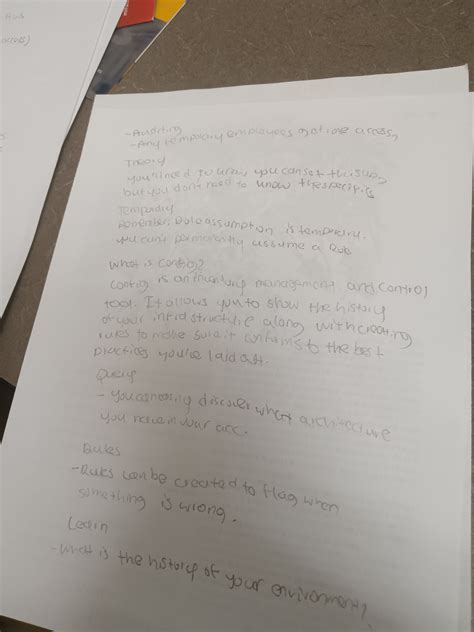 - Auditing
- Any temporary employees onetime access
Theory
you'll need to know you can set this up,
but you don't need to know the specifics
Temporary
Remember: Role assumption is temporary.
you can't permanently assume a Role
What is Config?
Config is an inventory management and control
tool. It allows you to show the history
of your infrastructure along with creating
rules to make sure it conforms to the best
practices you've laid out.
Query
- You can easily discover what architecture
you have in your acc.
Rules
- Rules can be created to flag when
something is wrong.
Learn
- What is the history of your environment?